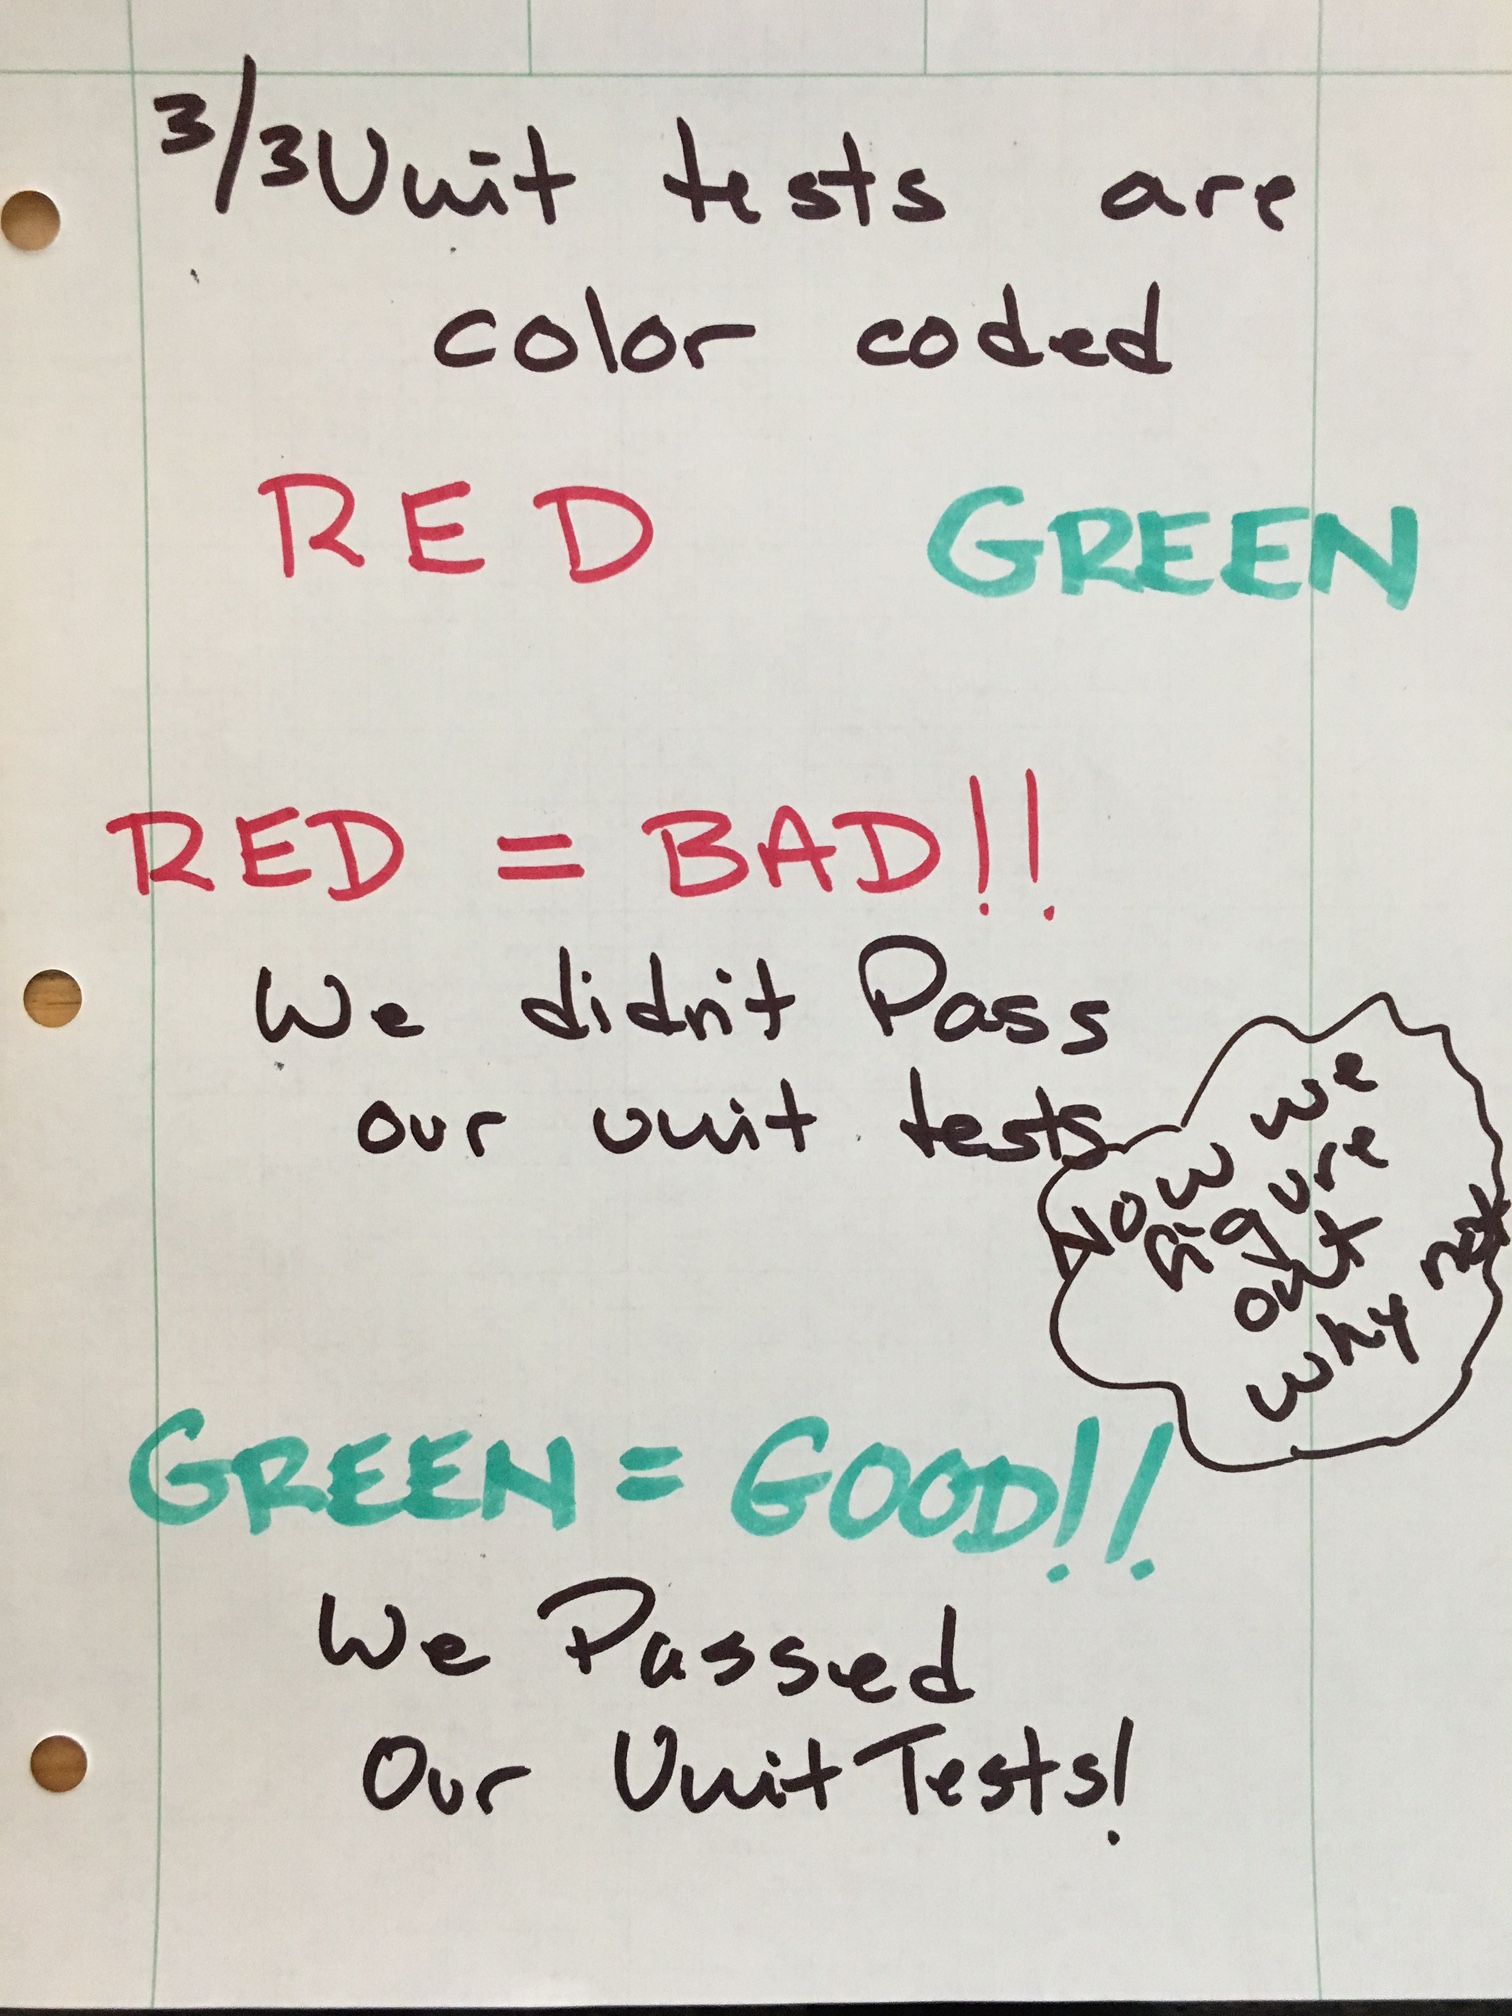 3/3 Unit tests are
color coded
RED GREEN
RED = BAD!!
We didn't Pass
our unit tests
Now we
figure
out
why not
GREEN = GOOD!!
We Passed
Our Unit Tests!